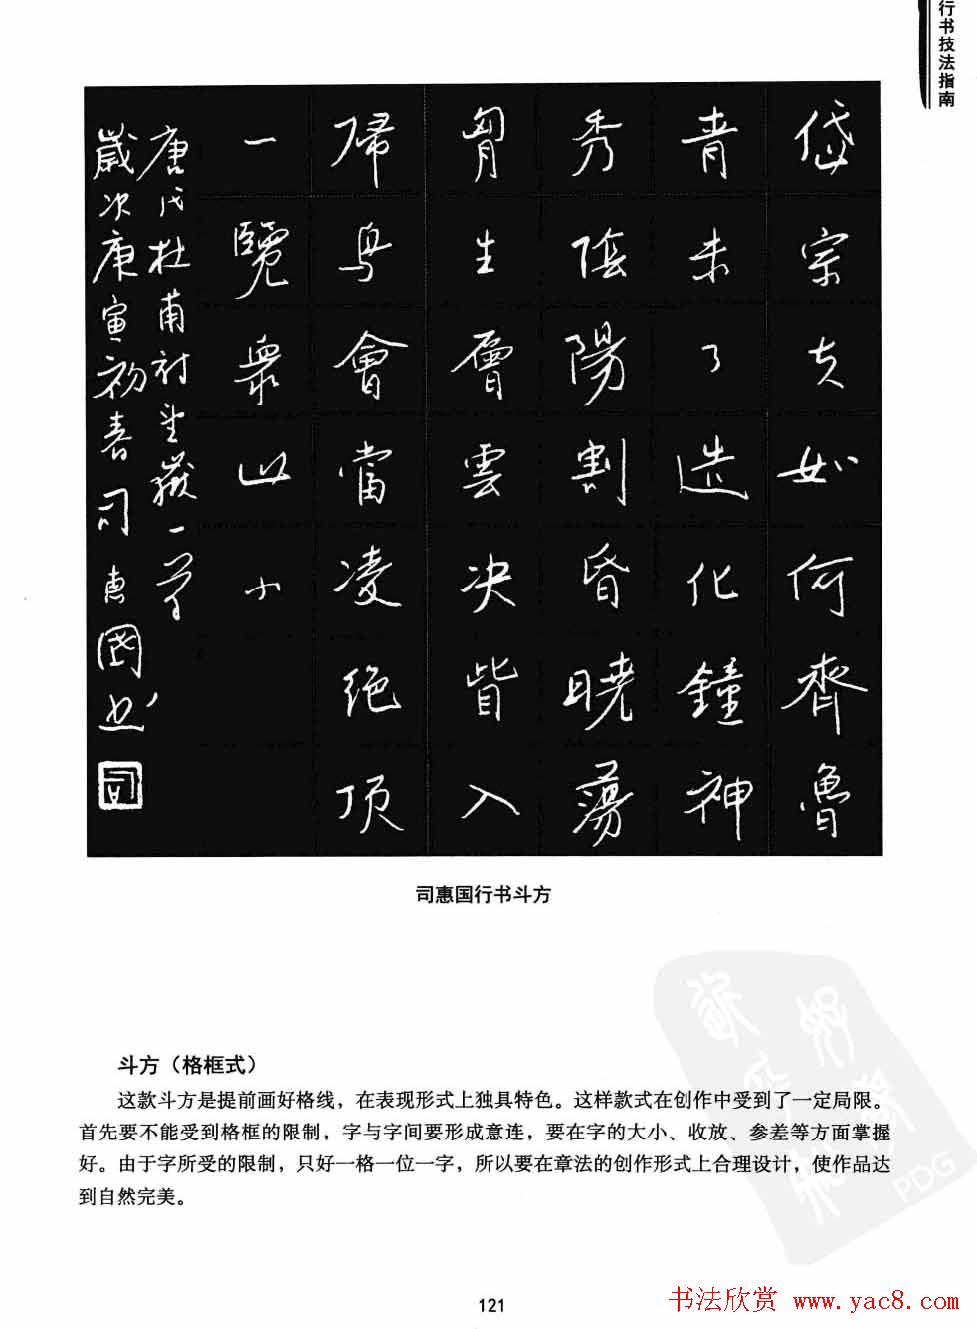 行书技法指南
岱宗夫如何齊魯
青未了造化鐘神
秀陰陽割昏曉蕩
胷生層雲決眥入
帰鳥會當凌绝顶
一覽衆山小
唐代杜甫诗望嶽一首
歲次庚寅初春司惠國书
司惠国行书斗方
斗方（格框式）
这款斗方是提前画好格线，在表现形式上独具特色。这样款式在创作中受到了一定局限。
首先要不能受到格框的限制，字与字间要形成意连，要在字的大小、收放、参差等方面掌握
好。由于字所受的限制，只好一格一位一字，所以要在章法的创作形式上合理设计，使作品达
到自然完美。
PDG
121
书法欣赏 www.yac8.com